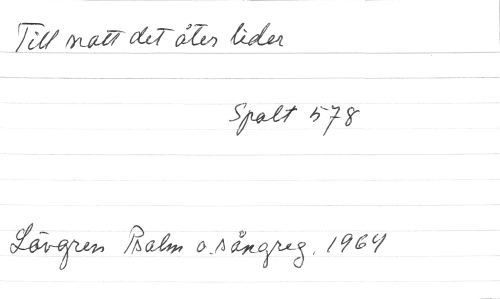 Till natt det åter lider
Spalt 578
Lövgren Psalm o. sångreg. 1964